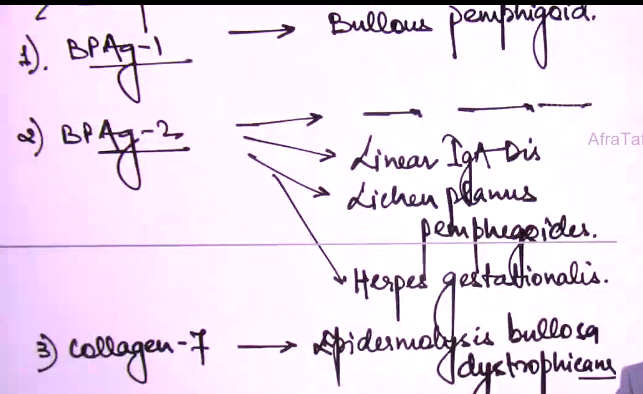 1). BPAg-1 → Bullous pemphigoid.
2) BPAg-2 → — — —
→ Linear IgA Dis
→ Lichen planus
pemphegoides.
→ Herpes gestationalis.
3) collagen-7 → Epidermolysis bullosa
dystrophicans
AfraTaf